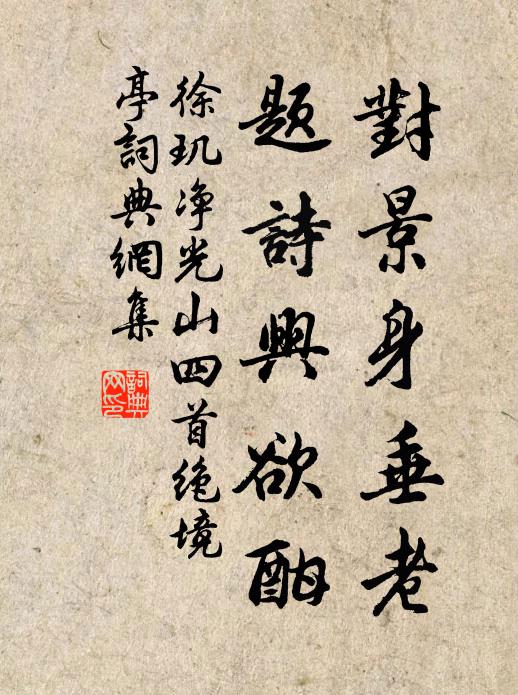 對景身垂老
題詩興欲酣
徐玑净光山四首绝境
亭詞典網集
詞典
网印